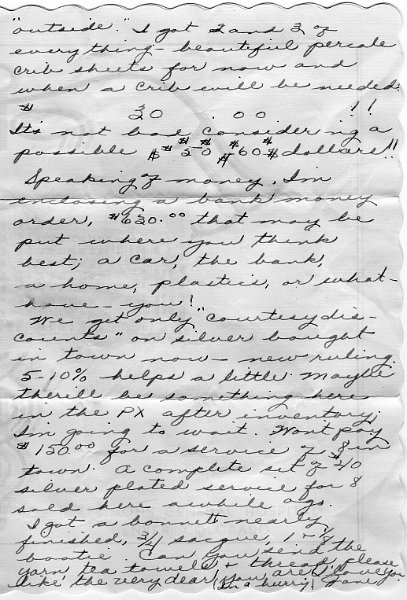 "outside." I got 2 and 3 of
everything - beautiful percale
crib sheets for now and
when a crib will be needed.
$ 20 . 00 !!
It's not bad considering a
possible $ 50 $ 60 $ dollars!!
Speaking of money, I'm
enclosing a bank money
order, $620.00 that may be
put where you think
best; a car, the bank,
a home, plastics, or what-
have - you!
We get only "courtesy dis-
counts" on silver bought
in town now - new ruling.
5-10% helps a little. Maybe
there'll be something here
in the PX after inventory;
I'm going to wait. Won't pay
$150.00 for a service of 8 in
town. A complete set of
silver plated service for 8
sold here awhile ago.
I got a bonnet nearly
finished, 3/4 sacque, 1 - 7/8
bootie. Can you send the
yarn, tea towels + thread, please
like the very dear you are? Love you
(In a hurry) Jane